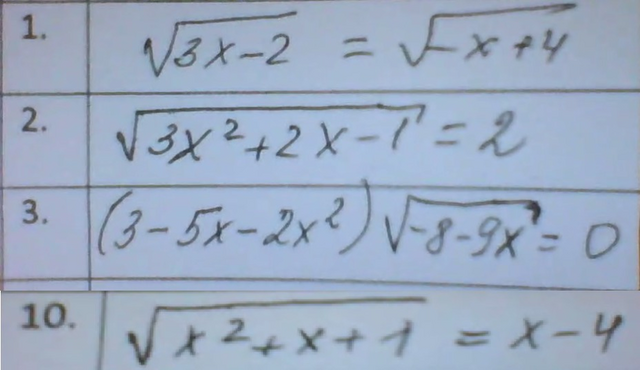 1. √(3x-2) = √(-x+4)
2. √(3x²+2x-1) = 2
3. (3-5x-2x²)√(-8-9x) = 0
10. √(x²+x+1) = x-4